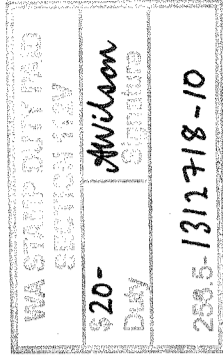 WA STAMP DUTY PAID
$ 20-
Duty
AWilson
Signature
258.5-1312718-10